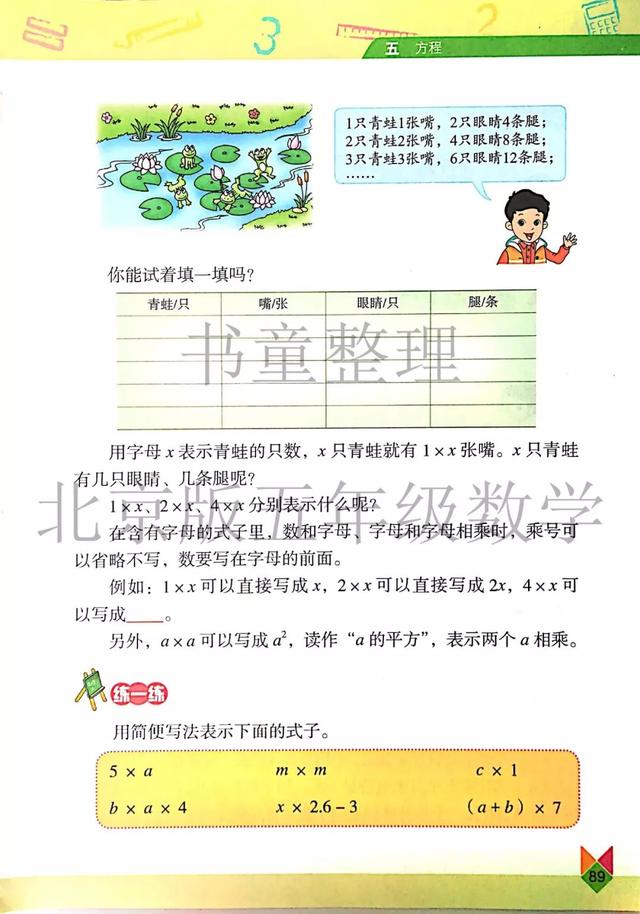 五 方程
1只青蛙1张嘴，2只眼睛4条腿；
2只青蛙2张嘴，4只眼睛8条腿；
3只青蛙3张嘴，6只眼睛12条腿；
……
你能试着填一填吗？
青蛙/只 嘴/张 眼睛/只 腿/条
书童整理
用字母 x 表示青蛙的只数，x 只青蛙就有 1 × x 张嘴。x 只青蛙
有几只眼睛、几条腿呢？
北京版五年级数学
1 × x、2 × x、4 × x 分别表示什么呢？
在含有字母的式子里，数和字母，字母和字母相乘时，乘号可
以省略不写，数要写在字母的前面。
例如：1 × x 可以直接写成 x，2 × x 可以直接写成 2x，4 × x 可
以写成____。
另外，a × a 可以写成 a²，读作“a 的平方”，表示两个 a 相乘。
练一练
用简便写法表示下面的式子。
5 × a m × m c × 1
b × a × 4 x × 2.6 – 3 (a + b) × 7
89